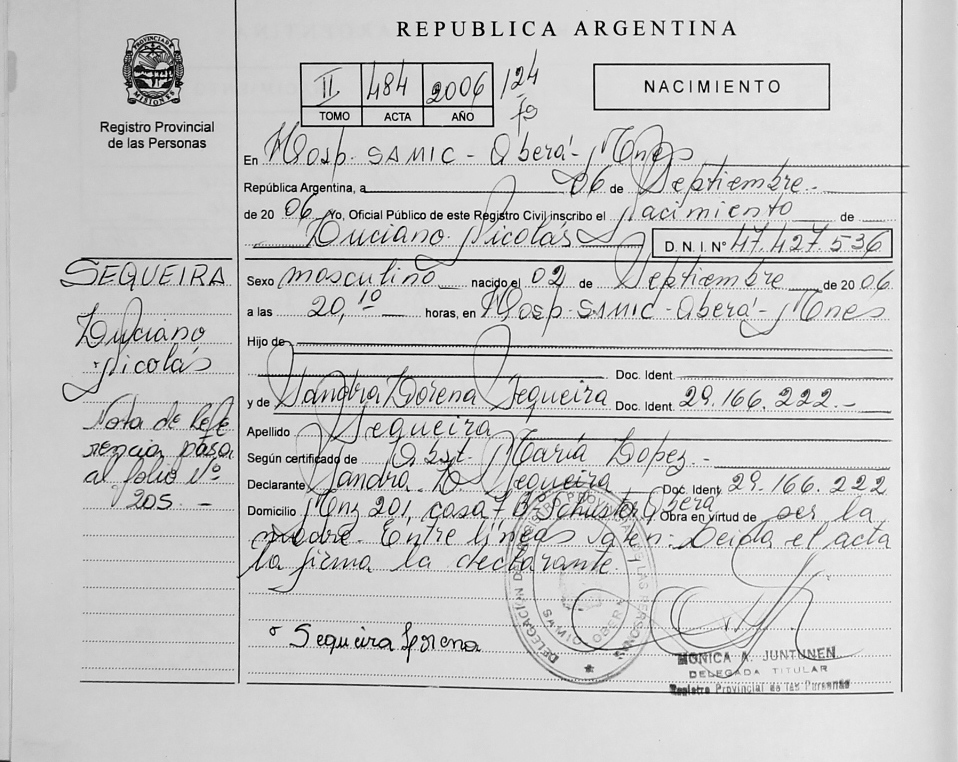 REPUBLICA ARGENTINA
PROVINCIA DE MISIONES
Registro Provincial
de las Personas
II 484 2006 124
TOMO ACTA AÑO
NACIMIENTO
En Hosp. SAMIC - Oberá - Mnes
República Argentina, a 06 de Septiembre.-
de 20 06 Yo, Oficial Público de este Registro Civil inscribo el Nacimiento de
Luciano Nicolás D. N. I. Nº 47.427.536
SEQUEIRA
Luciano
Nicolás
Nota de Refe
rencia pasa
al folio Nº
205. -
Sexo masculino nacido el 02 de Septiembre de 20 06
a las 20,10 horas, en Hosp. SAMIC - Oberá - Mnes
Hijo de
Doc. Ident.
y de Sandra Lorena Sequeira Doc. Ident. 29.166.222.-
Apellido Sequeira
Según certificado de Obst. María Lopez. -
Declarante Sandra L. Sequeira Doc. Ident. 29.166.222
Domicilio Mnz 201, casa 7 Bº Schuster Oberá Obra en virtud de ser la
madre. Entre líneas valen: Leída el acta
la firma la declarante.
Sequeira Lorena
DELEGACION DE REGISTRO PROVINCIAL DE LAS PERSONAS
SAMIC OBERA
MONICA A. JUNTUNEN
DELEGADA TITULAR
Registro Provincial de las Personas